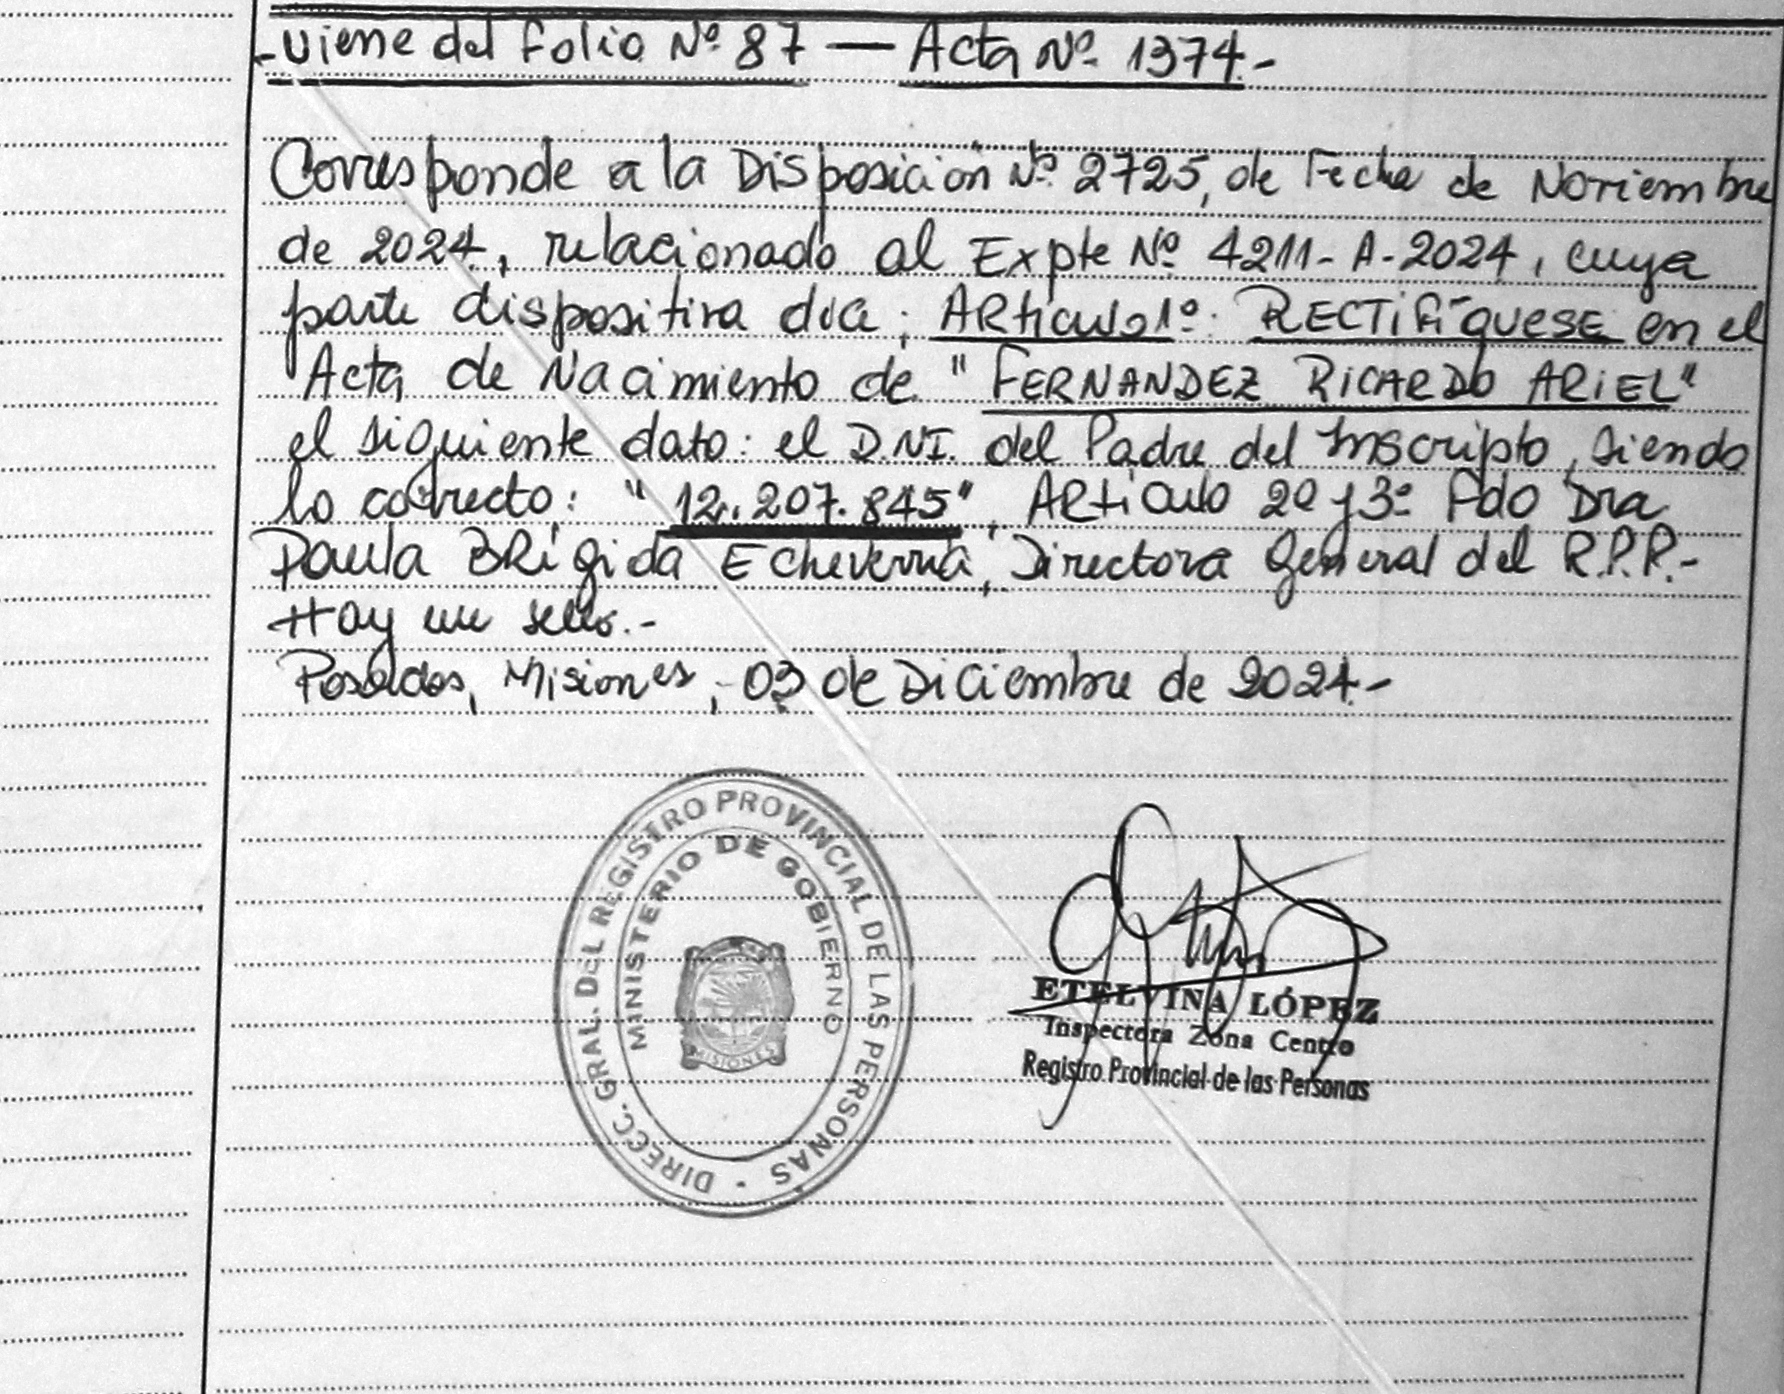 -Viene del Folio Nº 87 — Acta Nº 1374.-
Corresponde a la Disposición Nº 2725, de Fecha de Noviembre
de 2024, relacionado al Expte Nº 4211-A-2024, cuya
parte dispositiva dice: ARtículo 1º: RECTIFÍQUESE en el
Acta de Nacimiento de "FERNANDEZ RICARDO ARIEL"
el siguiente dato: el D.N.I. del Padre del Inscripto, siendo
lo correcto: "12.207.845", ARtículo 2º y 3º Fdo Dra
Paula BRígida Echeverría, Directora General del R.P.P.-
Hay un sello.-
Posadas, Misiones, 03 de Diciembre de 2024.-
DIRECC. GRAL. DEL REGISTRO PROVINCIAL DE LAS PERSONAS
MINISTERIO DE GOBIERNO
MISIONES
ETELVINA LÓPEZ
Inspectora Zona Centro
Registro Provincial de las Personas